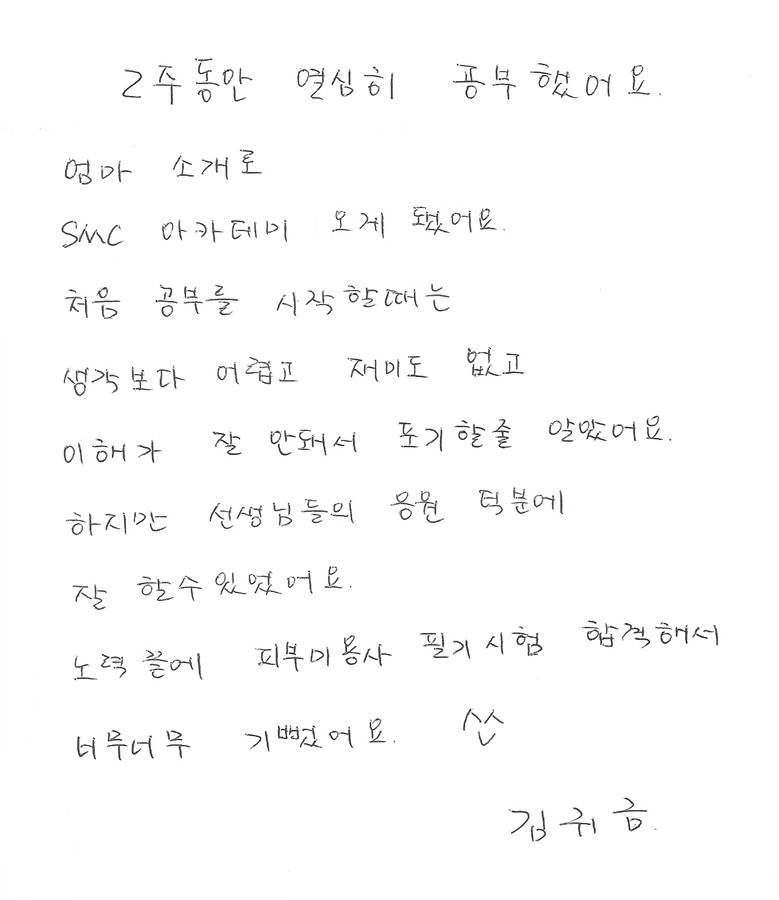 2주동안 열심히 공부했어요.
엄마 소개로
SMC 아카데미 오게 됐어요.
처음 공부를 시작할때는
생각보다 어렵고 재미도 없고
이해가 잘 안돼서 포기할줄 알았어요.
하지만 선생님들의 응원 덕분에
잘 할수있었어요.
노력 끝에 피부미용사 필기시험 합격해서
너무너무 기뻤어요. ^^
김귀금.